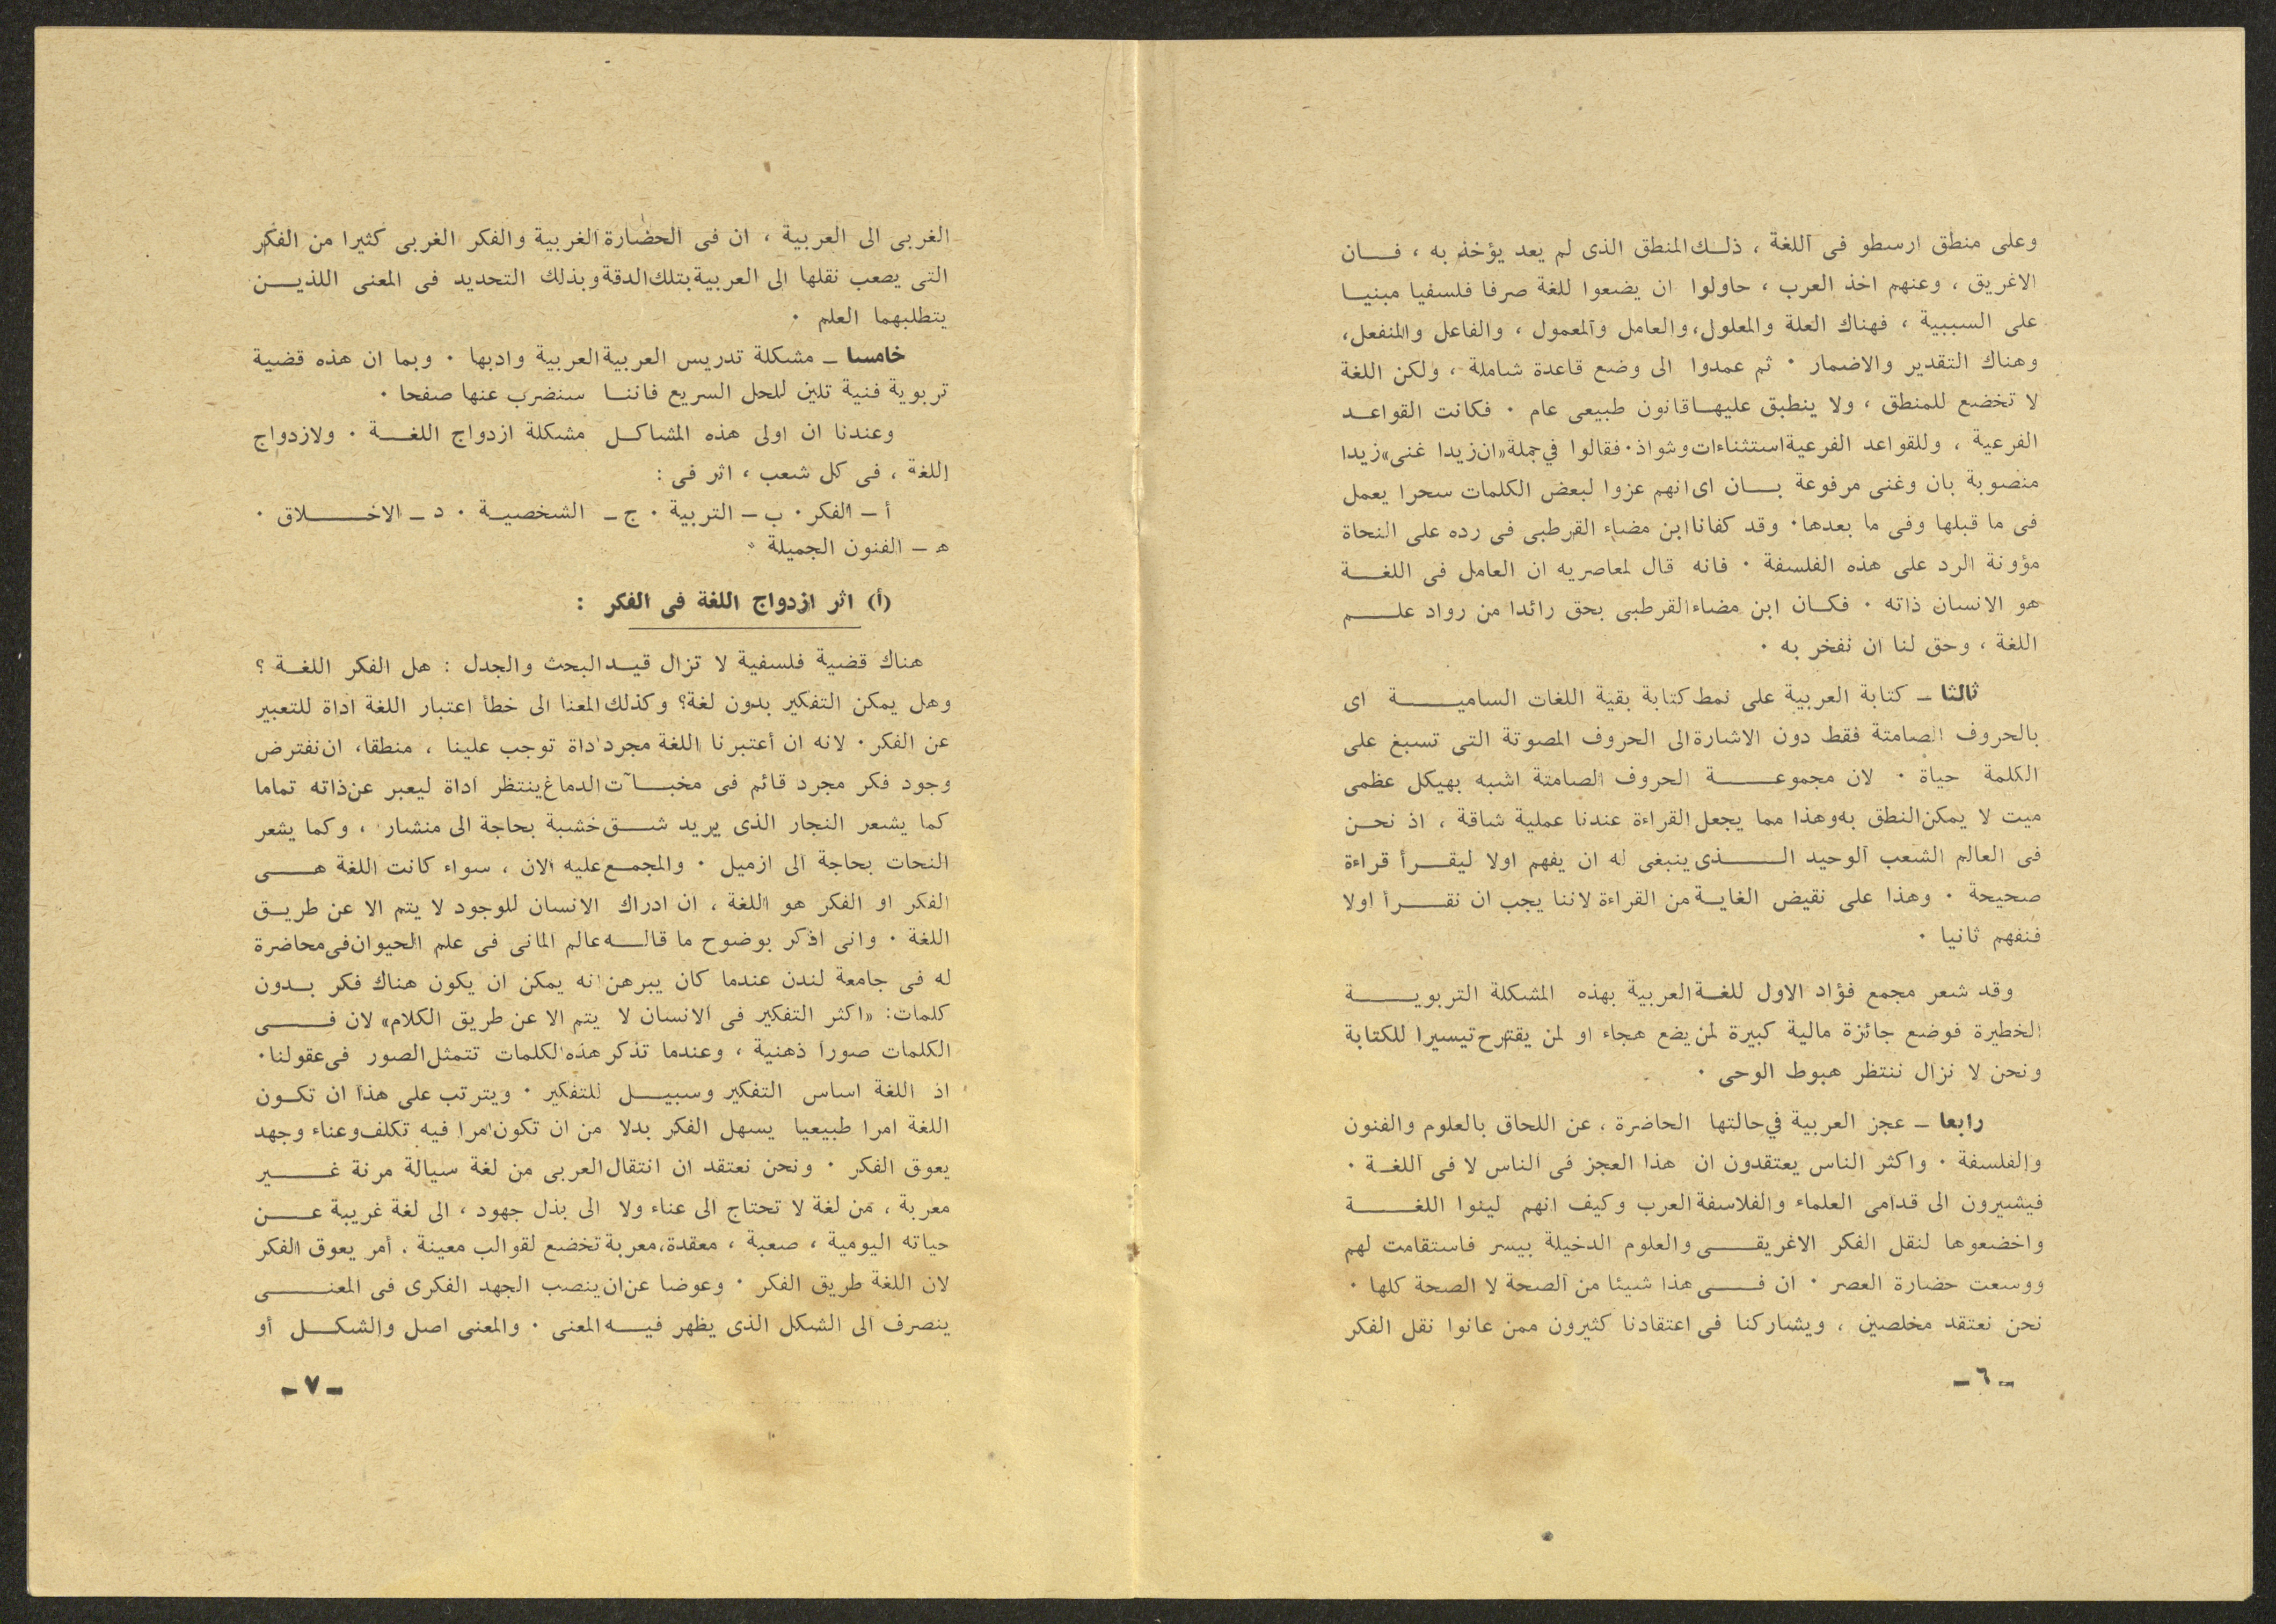 وعلى منطق ارسطو فى اللغة ، ذلك المنطق الذى لم يعد يؤخذ به ، فان
الاغريق ، وعنهم اخذ العرب ، حاولوا ان يضعوا للغة صرفا فلسفيا مبنيا
على السببية ، فهناك العلة والمعلول، والعامل والمعمول ، والفاعل والمنفعل،
وهناك التقدير والاضمار · ثم عمدوا الى وضع قاعدة شاملة ، ولكن اللغة
لا تخضع للمنطق ، ولا ينطبق عليها قانون طبيعى عام · فكانت القواعد
الفرعية ، وللقواعد الفرعية استثناءات وشواذ · فقالوا في جملة «ان زيدا غنى» زيدا
منصوبة بان وغنى مرفوعة بان اى انهم عزوا لبعض الكلمات سحرا يعمل
فى ما قبلها وفى ما بعدها · وقد كفانا ابن مضاء القرطبى فى رده على النحاة
مؤونة الرد على هذه الفلسفة · فانه قال لمعاصريه ان العامل فى اللغة
هو الانسان ذاته · فكان ابن مضاء القرطبى بحق رائدا من رواد علم
اللغة ، وحق لنا ان نفخر به ·
ثالثا ـ كتابة العربية على نمط كتابة بقية اللغات السامية اى
بالحروف الصامتة فقط دون الاشارة الى الحروف المصوتة التى تسبغ على
الكلمة حياة · لان مجموعة الحروف الصامتة اشبه بهيكل عظمى
ميت لا يمكن النطق به وهذا مما يجعل القراءة عندنا عملية شاقة ، اذ نحن
فى العالم الشعب الوحيد الذى ينبغى له ان يفهم اولا ليقرأ قراءة
صحيحة · وهذا على نقيض الغاية من القراءة لاننا يجب ان نقرأ اولا
فنفهم ثانيا ·
وقد شعر مجمع فؤاد الاول للغة العربية بهذه المشكلة التربوية
الخطيرة فوضع جائزة مالية كبيرة لمن يضع هجاء او لمن يقترح تيسيرا للكتابة
ونحن لا نزال ننتظر هبوط الوحى ·
رابعا ـ عجز العربية في حالتها الحاضرة ، عن اللحاق بالعلوم والفنون
والفلسفة · واكثر الناس يعتقدون ان هذا العجز فى الناس لا فى اللغة ·
فيشيرون الى قدامى العلماء والفلاسفة العرب وكيف انهم لينوا اللغة
واخضعوها لنقل الفكر الاغريقى والعلوم الدخيلة بيسر فاستقامت لهم
ووسعت حضارة العصر · ان فى هذا شيئا من الصحة لا الصحة كلها ·
نحن نعتقد مخلصين ، ويشاركنا فى اعتقادنا كثيرون ممن عانوا نقل الفكر
ـ ٦ ـ
الغربى الى العربية ، ان فى الحضارة الغربية والفكر الغربى كثيرا من الفكر
التى يصعب نقلها الى العربية بتلك الدقة وبذلك التحديد فى المعنى اللذين
يتطلبهما العلم ·
خامسا ـ مشكلة تدريس العربية العربية وادبها · وبما ان هذه قضية
تربوية فنية تلين للحل السريع فاننا سنضرب عنها صفحا ·
وعندنا ان اولى هذه المشاكل مشكلة ازدواج اللغة · ولازدواج
اللغة ، فى كل شعب ، اثر فى :
أ ـ الفكر · ب ـ التربية · ج ـ الشخصية · د ـ الاخلاق ·
ه ـ الفنون الجميلة ·
(أ) اثر ازدواج اللغة فى الفكر :
هناك قضية فلسفية لا تزال قيد البحث والجدل : هل الفكر اللغة ؟
وهل يمكن التفكير بدون لغة؟ وكذلك المعنا الى خطأ اعتبار اللغة اداة للتعبير
عن الفكر · لانه ان أعتبرنا اللغة مجرد اداة توجب علينا ، منطقا، ان نفترض
وجود فكر مجرد قائم فى مخبآت الدماغ ينتظر اداة ليعبر عن ذاته تماما
كما يشعر النجار الذى يريد شق خشبة بحاجة الى منشار ، وكما يشعر
النحات بحاجة الى ازميل · والمجمع عليه الان ، سواء كانت اللغة هى
الفكر او الفكر هو اللغة ، ان ادراك الانسان للوجود لا يتم الا عن طريق
اللغة · وانى اذكر بوضوح ما قاله عالم المانى فى علم الحيوان فى محاضرة
له فى جامعة لندن عندما كان يبرهن انه يمكن ان يكون هناك فكر بدون
كلمات: «اكثر التفكير فى الانسان لا يتم الا عن طريق الكلام» لان فى
الكلمات صورا ذهنية ، وعندما تذكر هذه الكلمات تتمثل الصور فى عقولنا ·
اذ اللغة اساس التفكير وسبيل للتفكير · ويترتب على هذا ان تكون
اللغة امرا طبيعيا يسهل الفكر بدلا من ان تكون امرا فيه تكلف وعناء وجهد
يعوق الفكر · ونحن نعتقد ان انتقال العربى من لغة سيالة مرنة غير
معربة ، من لغة لا تحتاج الى عناء ولا الى بذل جهود ، الى لغة غريبة عن
حياته اليومية ، صعبة ، معقدة، معربة تخضع لقوالب معينة . أمر يعوق الفكر
لان اللغة طريق الفكر · وعوضا عن ان ينصب الجهد الفكرى فى المعنى
ينصرف الى الشكل الذى يظهر فيه المعنى · والمعنى اصل والشكل أو
ـ ٧ ـ